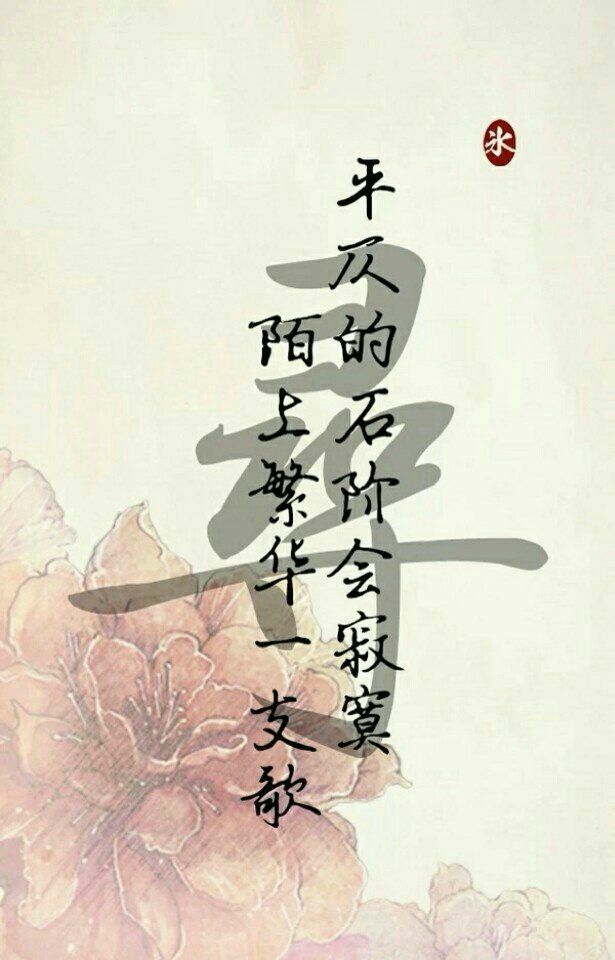 平仄的石阶会寂寞
陌上繁华一支歌
寻
氷